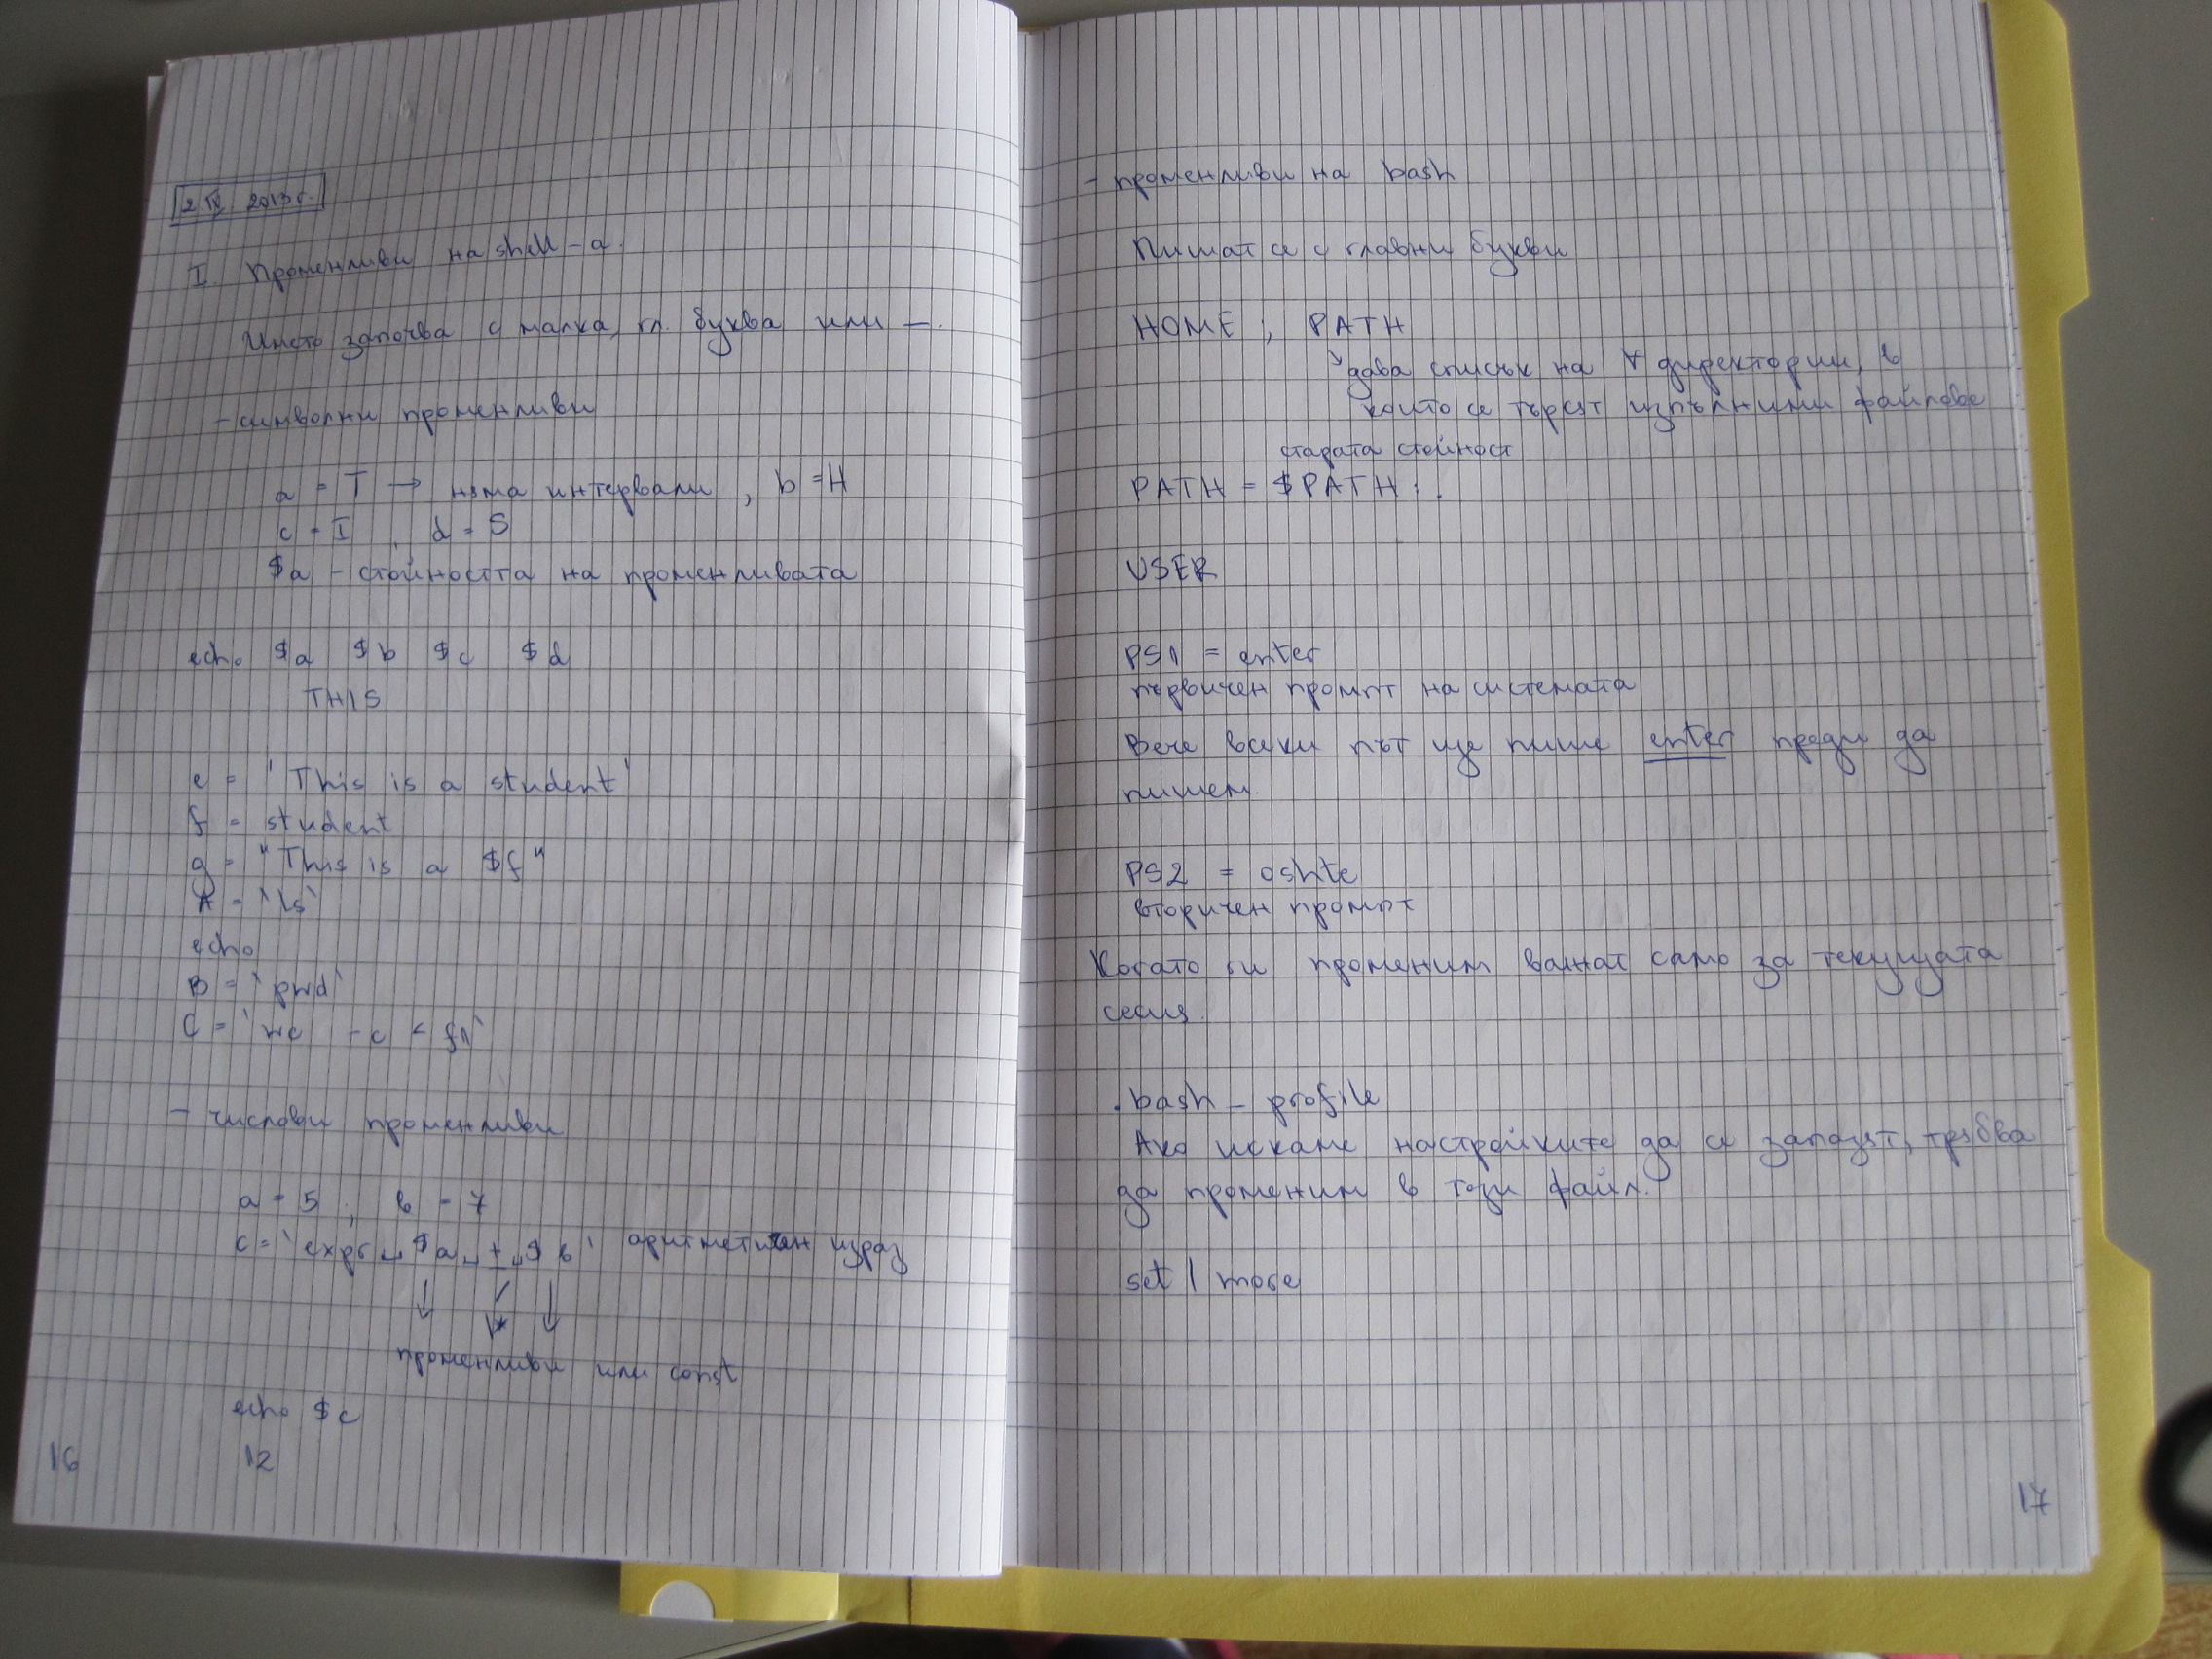 2.IV 2013г.
I. Променливи на shell-a.
Името започва с малка, гл. буква или _.
- символни променливи
a = T → няма интервали , b = H
c = I , d = S
$a - стойността на променливата
echo $a $b $c $d
THIS
e = 'This is a student'
f = student
g = "This is a $f"
A = `ls`
echo
B = `pwd`
C = `wc -c < f1`
- числови променливи
a = 5 ; b = 7
c = `expr␣$a␣+␣$b` аритметичен израз
\*
променливи или const
echo $c
12
16
- променливи на bash
Пишат се с главни букви
HOME ; PATH
дава списък на ∀ директории, в
които се търсят изпълними файлове
старата стойност
PATH = $PATH : .
USER
PS1 = enter
първичен промпт на системата
Вече всеки път ще пише enter преди да
пишем.
PS2 = oshte
вторичен промпт
Когато ги променим важат само за текущата
сесия.
.bash_profile
Ако искаме настройките да се запазят, трябва
да променим в този файл.
set | more
17